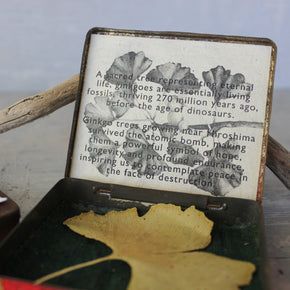 A sacred tree representing eternal
life, ginkgoes are essentially living
fossils, thriving 270 million years ago,
before the age of dinosaurs.
Ginkgo trees growing near Hiroshima
survived the atomic bomb, making
them a powerful symbol of hope,
longevity and profound endurance,
inspiring us to contemplate peace in
the face of destruction.